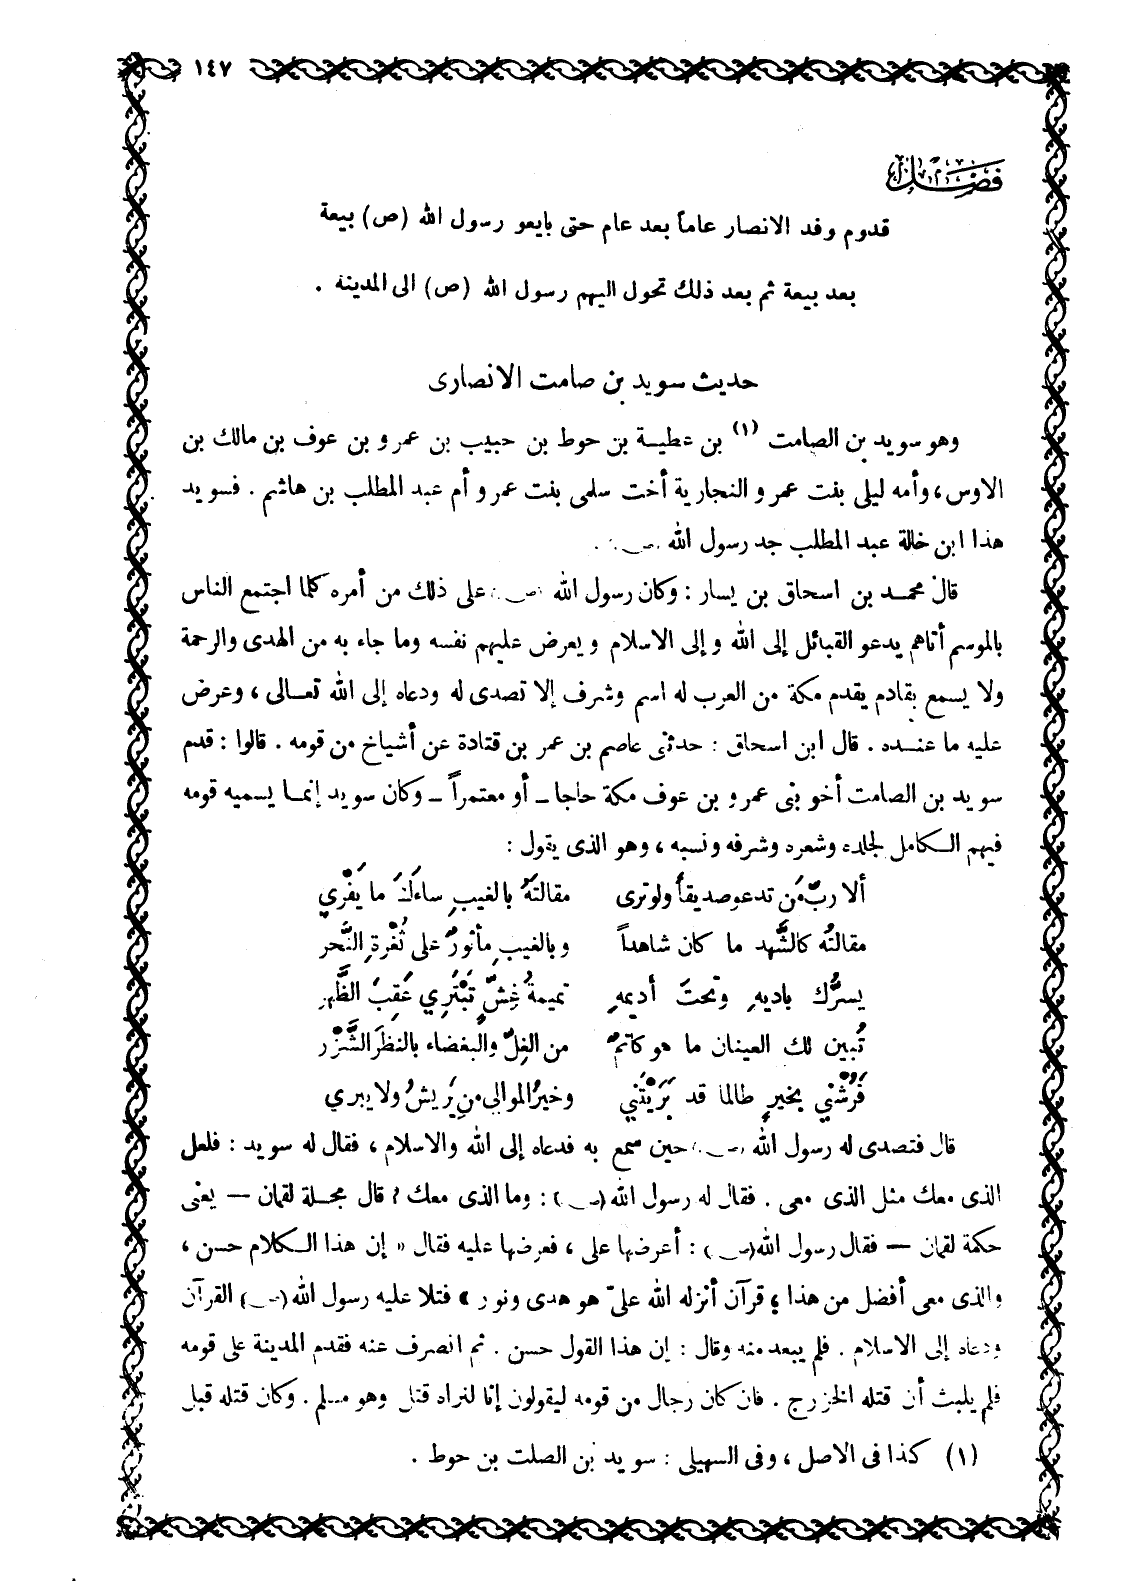 ١٤٧
فصل
قدوم وفد الانصار عاماً بعد عام حتى بايعو رسول الله (ص) بيعة
بعد بيعة ثم بعد ذلك تحول اليهم رسول الله (ص) الى المدينة .
حديث سويد بن صامت الانصارى
وهو سويد بن الصامت (١) بن عطية بن حوط بن حبيب بن عمرو بن عوف بن مالك بن
الاوس ، وأمه ليلى بنت عمرو النجارية أخت سلمى بنت عمرو أم عبد المطلب بن هاشم . فسويد
هذا ابن خالة عبد المطلب جد رسول الله (ص) .
قال محمد بن اسحاق بن يسار : وكان رسول الله (ص) على ذلك من أمره كلما اجتمع الناس
بالموسم أتاهم يدعو القبائل إلى الله وإلى الاسلام ويعرض عليهم نفسه وما جاء به من الهدى والرحمة
ولا يسمع بقادم يقدم مكة من العرب له اسم وشرف إلا تصدى له ودعاه إلى الله تعالى ، وعرض
عليه ما عنده . قال ابن اسحاق : حدثنى عاصم بن عمر بن قتادة عن أشياخ من قومه . قالوا : قدم
سويد بن الصامت أخو بنى عمرو بن عوف مكة حاجا ـ أو معتمراً ـ وكان سويد إنما يسميه قومه
فيهم الكامل لجلده وشعره وشرفه ونسبه ، وهو الذى يقول :
ألا ربَّ مَن تدعو صديقاً ولو ترى مقالتَهُ بالغيبِ ساءَكَ ما يَفْرِي
مقالتُه كالشَّهد ما كان شاهداً وبالغيبِ مأثورٌ على ثُغْرةِ النَّحر
يسرُّك باديهِ وتحتَ أديمهِ تميمةُ غِشٍّ تَبْتَرِي عَقِبَ الظَّهر
تُبين لك العينان ما هو كاتمٌ من الغِلِّ والبغضاء بالنظَر الشَّزْر
فَرُشْني بخيرٍ طالما قد بَرَيْتَني وخيرُ الموالى من يَريشُ ولا يبري
قال فتصدى له رسول الله (ص) حين سمع به فدعاه إلى الله والاسلام ، فقال له سويد : فلعل
الذى معك مثل الذى معى . فقال له رسول الله (ص) : وما الذى معك ؟ قال مجلة لقمان — يعنى
حكمة لقمان — فقال رسول الله (ص) : أعرضها على ، فعرضها عليه فقال « إن هذا الكلام حسن ،
والذى معى أفضل من هذا ؛ قرآن أنزله الله علىّ هو هدى ونور » فتلا عليه رسول الله (ص) القرآن
ودعاه إلى الاسلام . فلم يبعد منه وقال : إن هذا القول حسن . ثم انصرف عنه فقدم المدينة على قومه
فلم يلبث أن قتله الخزرج . فان كان رجال من قومه ليقولون إنا لنراه قتل وهو مسلم . وكان قتله قبل
(١) كذا فى الاصل ، وفى السهيلى : سويد بن الصلت بن حوط .